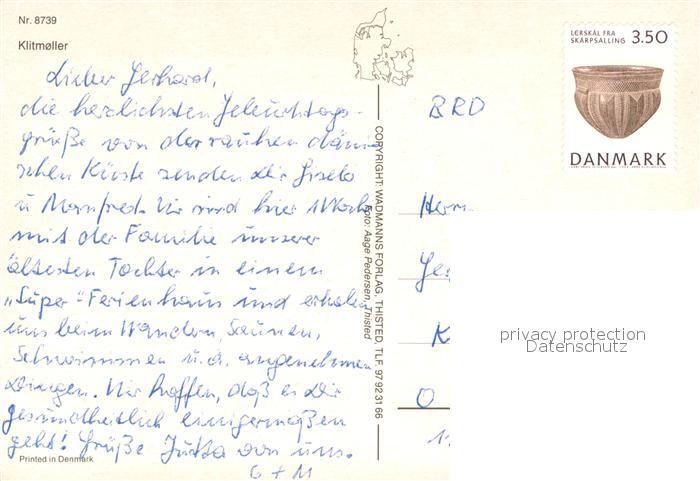 Nr. 8739
Klitmøller
Lieber Gerhard,
die herzlichsten Geburtstags-
grüße von der rauhen däni-
schen Küste senden Dir Gisela
u Manfred. Wir sind hier 1 Woche
mit der Familie unserer
ältesten Tochter in einem
„Super"-Ferienhaus und erholen
uns beim Wandern, Saunen,
Schwimmen u.a. angenehmen
Dingen. Wir hoffen, daß es Dir
gesundheitlich einigermaßen
geht! Grüße Jutta von uns.
G + M
Printed in Denmark
COPYRIGHT: WADMANNS FORLAG, THISTED, TLF. 97 92 31 66
Foto: Aage Pedersen, Thisted
LERSKÅL FRA
SKARPSALLING 3.50
DANMARK
BRD
Herrn
Ge
K
O
privacy protection
Datenschutz